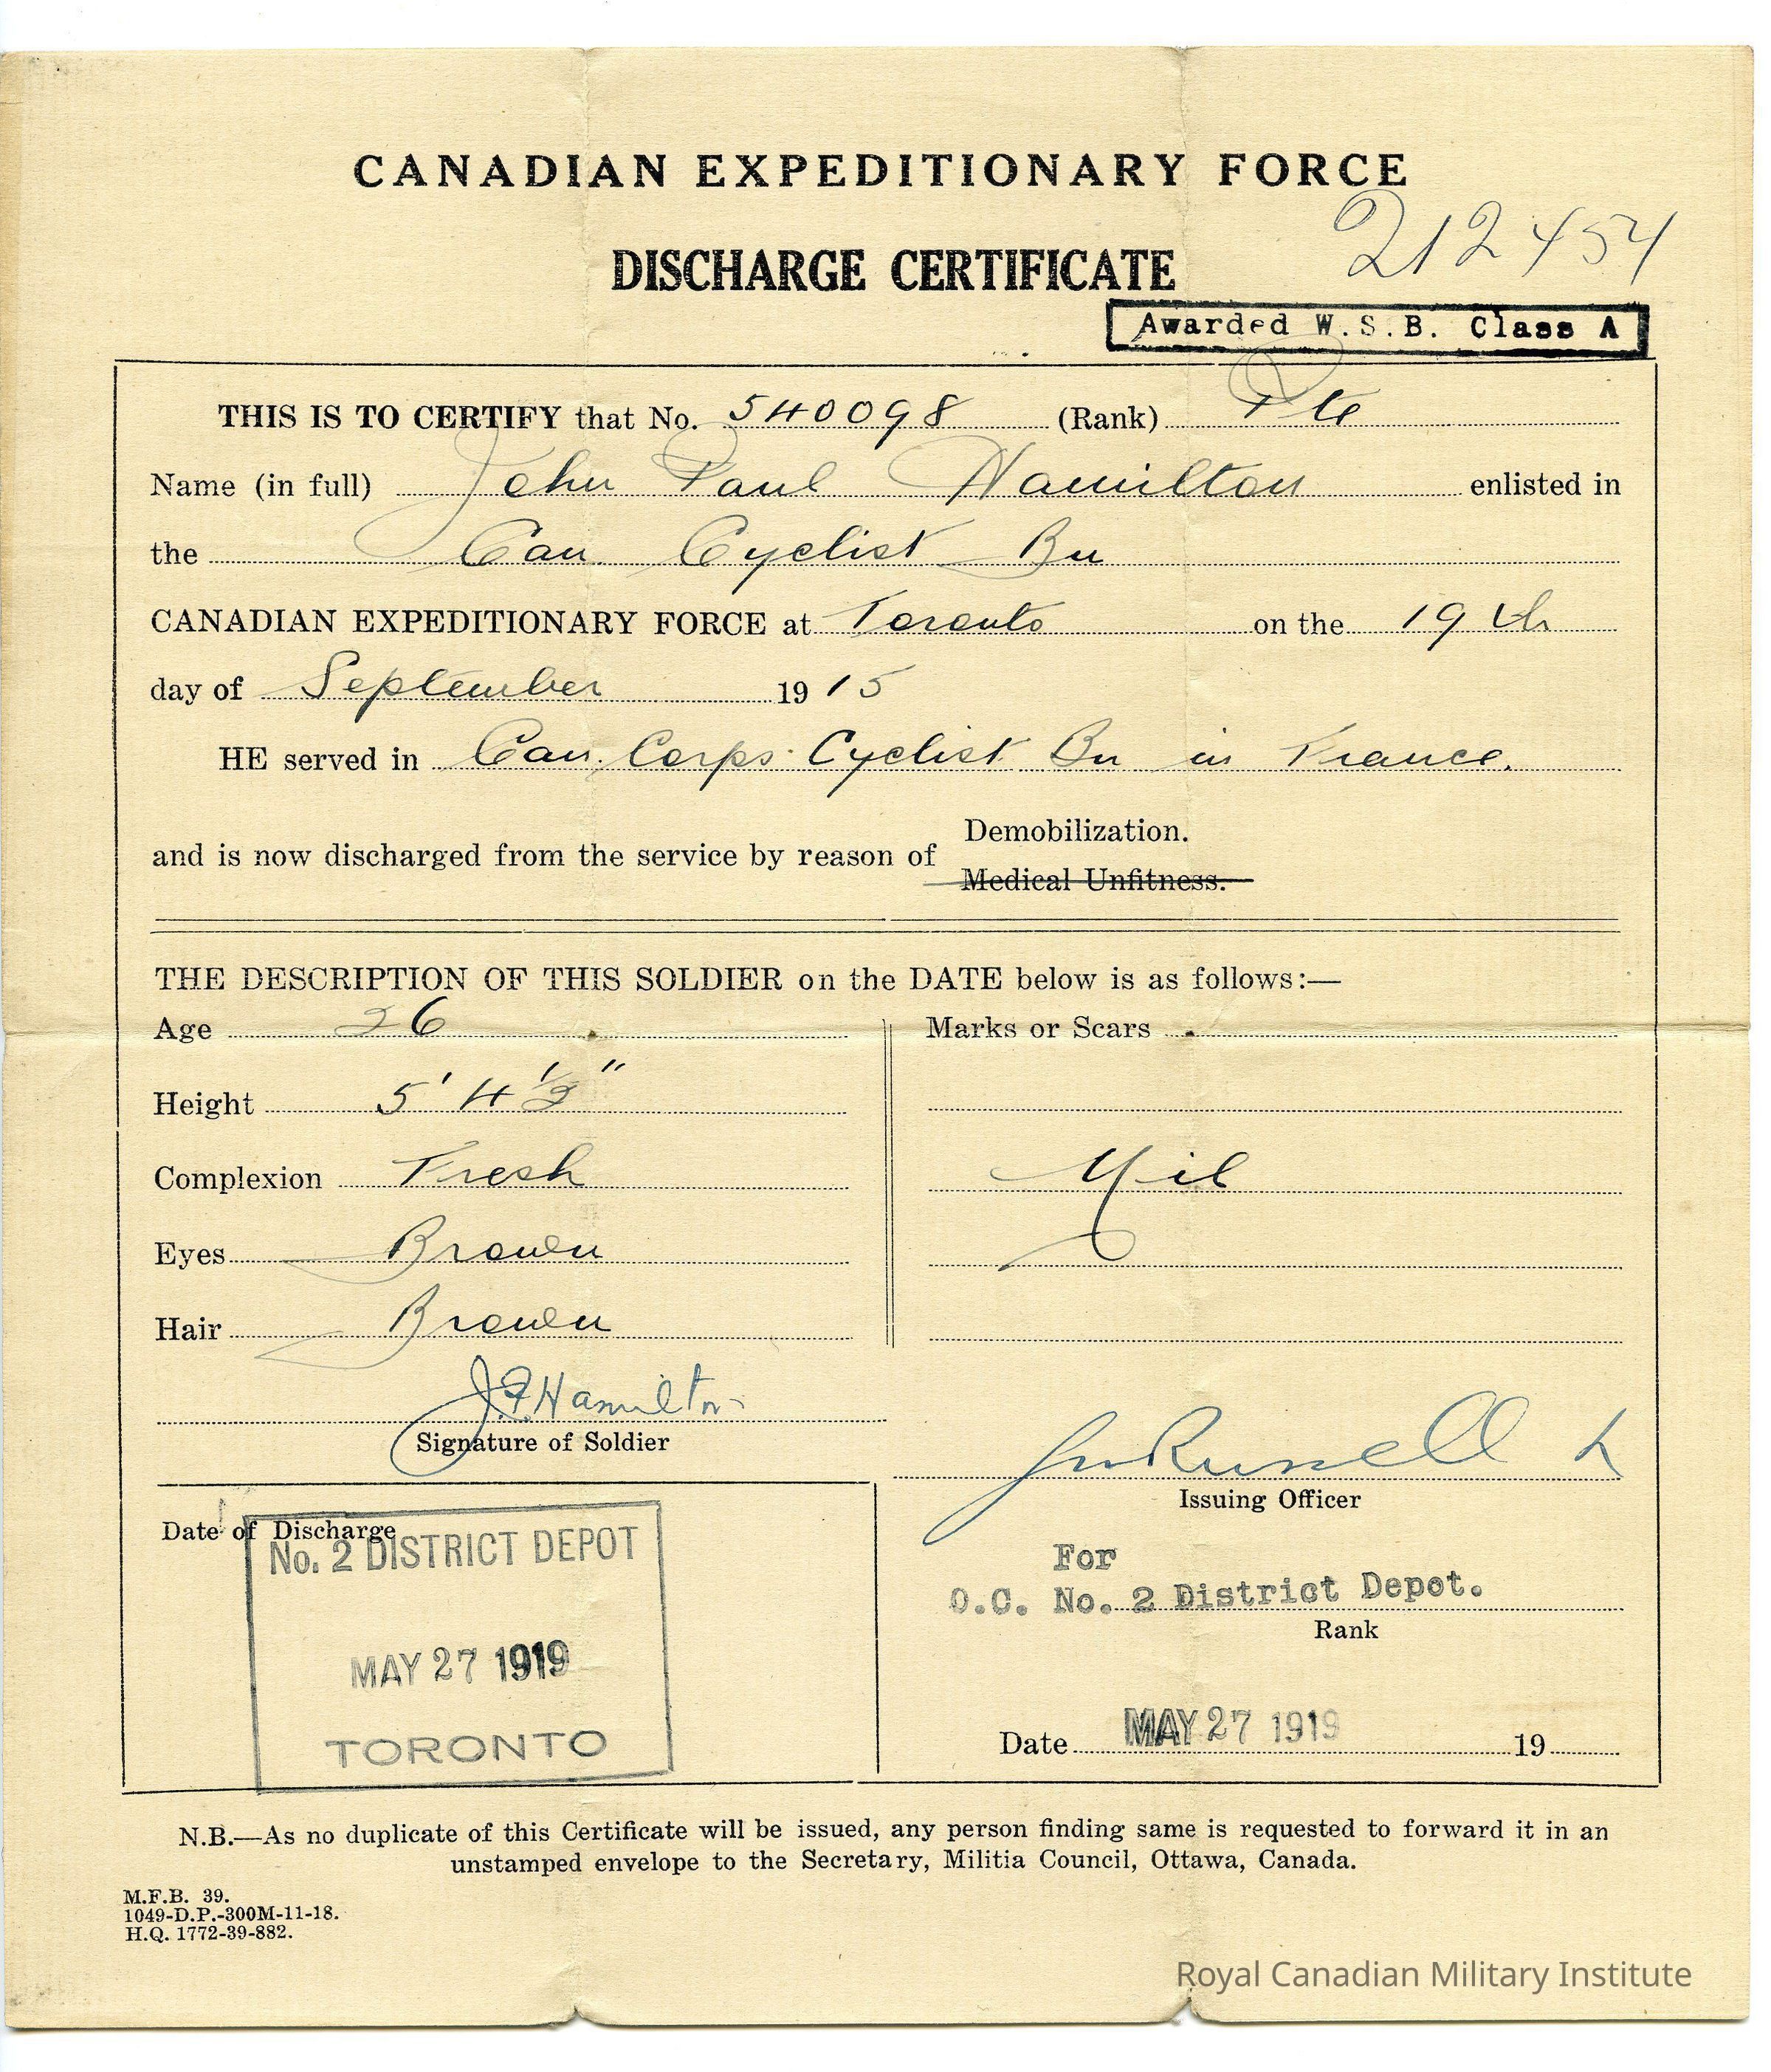 CANADIAN EXPEDITIONARY FORCE
212454
DISCHARGE CERTIFICATE
Awarded W.S.B. Class A
THIS IS TO CERTIFY that No. 540098 (Rank) Pte
Name (in full) John Paul Hamilton enlisted in
the Can. Cyclist Bn
CANADIAN EXPEDITIONARY FORCE at Toronto on the 19th
day of September 1915
HE served in Can. Corps Cyclist Bn in France.
Demobilization.
and is now discharged from the service by reason of
Medical Unfitness.
THE DESCRIPTION OF THIS SOLDIER on the DATE below is as follows:—
Age 26
Height 5' 4½"
Complexion Fresh
Eyes Brown
Hair Brown
Marks or Scars
Nil
J.P. Hamilton
Signature of Soldier
Russell
Issuing Officer
Date of Discharge
No. 2 DISTRICT DEPOT
MAY 27 1919
TORONTO
For
O.C. No. 2 District Depot.
Rank
Date MAY 27 1919 19
N.B.—As no duplicate of this Certificate will be issued, any person finding same is requested to forward it in an
unstamped envelope to the Secretary, Militia Council, Ottawa, Canada.
M.F.B. 39.
1049-D.P.-300M-11-18.
H.Q. 1772-39-882.
Royal Canadian Military Institute